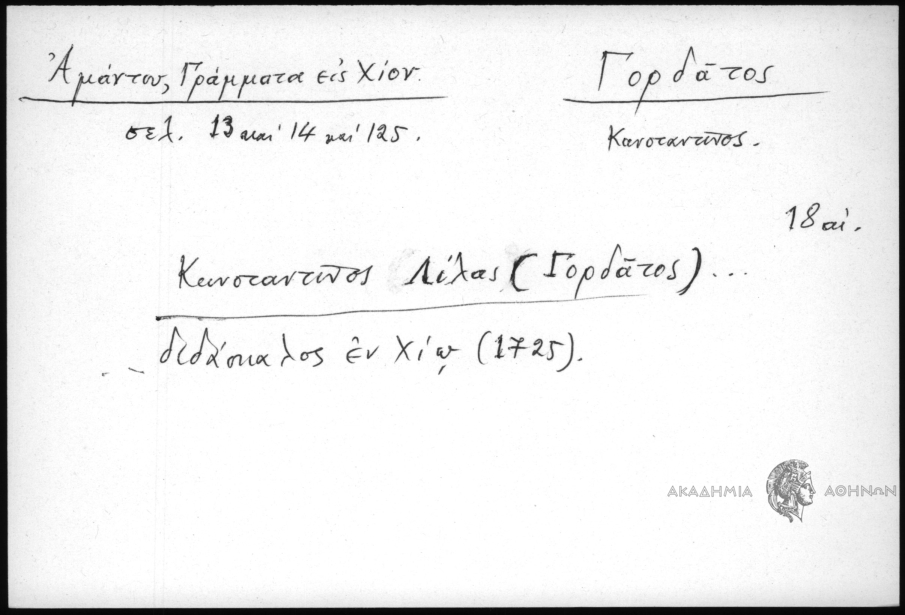 Ἀμάντου, Γράμματα εἰς Χίον.
σελ. 13 καὶ 14 καὶ 125.
Γορδᾶτος
Κωνσταντῖνος.
18 αἰ.
Κωνσταντῖνος Λίλας (Γορδᾶτος)...
διδάσκαλος ἐν Χίῳ (1725).
ΑΚΑΔΗΜΙΑ ΑΘΗΝΩΝ